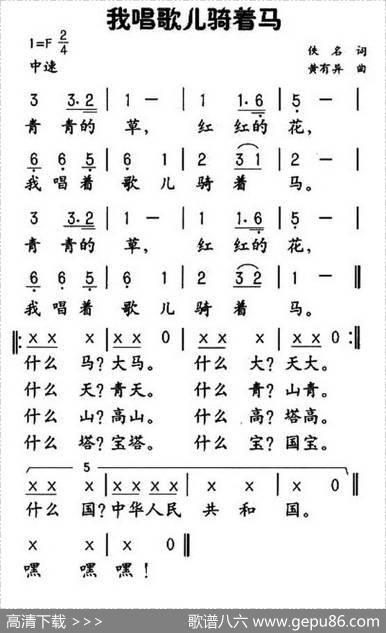 我唱歌儿骑着马
1=F 2/4
佚名 词
中速
黄有异 曲
3 3·2 | 1 — | 1 1·6 | 5 — |
青 青的 草， 红 红的 花，
6 6 5 | 6 1 | 2 3 1 | 2 — |
我唱着 歌儿 骑着 马。
3 3·2 | 1 — | 1 1·6 | 5 — |
青 青的 草， 红 红的 花，
6 6 5 | 6 1 | 2 3 2 | 1 — ‖
我唱着 歌儿 骑着 马。
‖: X X X | X X 0 | X X X | X X 0 :‖
什么 马？大马。 什么 大？天大。
什么 天？青天。 什么 青？山青。
什么 山？高山。 什么 高？塔高。
什么 塔？宝塔。 什么 宝？国宝。
5
X X X | X X X X | X X | X 0 ‖
什么 国？中华人民 共和 国。
X X | X 0 ‖
嘿 嘿 嘿！
高清下载 >>>
歌谱八六 www.gepu86.com